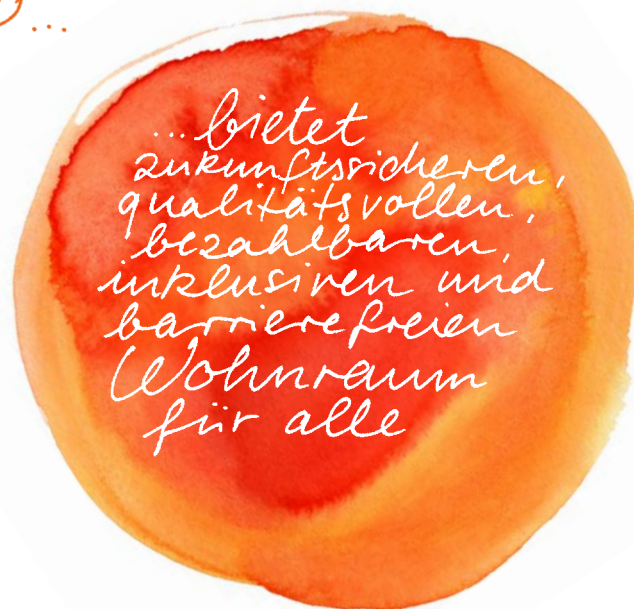 ...
...bietet
zukunftssicheren,
qualitätsvollen,
bezahlbaren,
inklusiven und
barrierefreien
Wohnraum
für alle